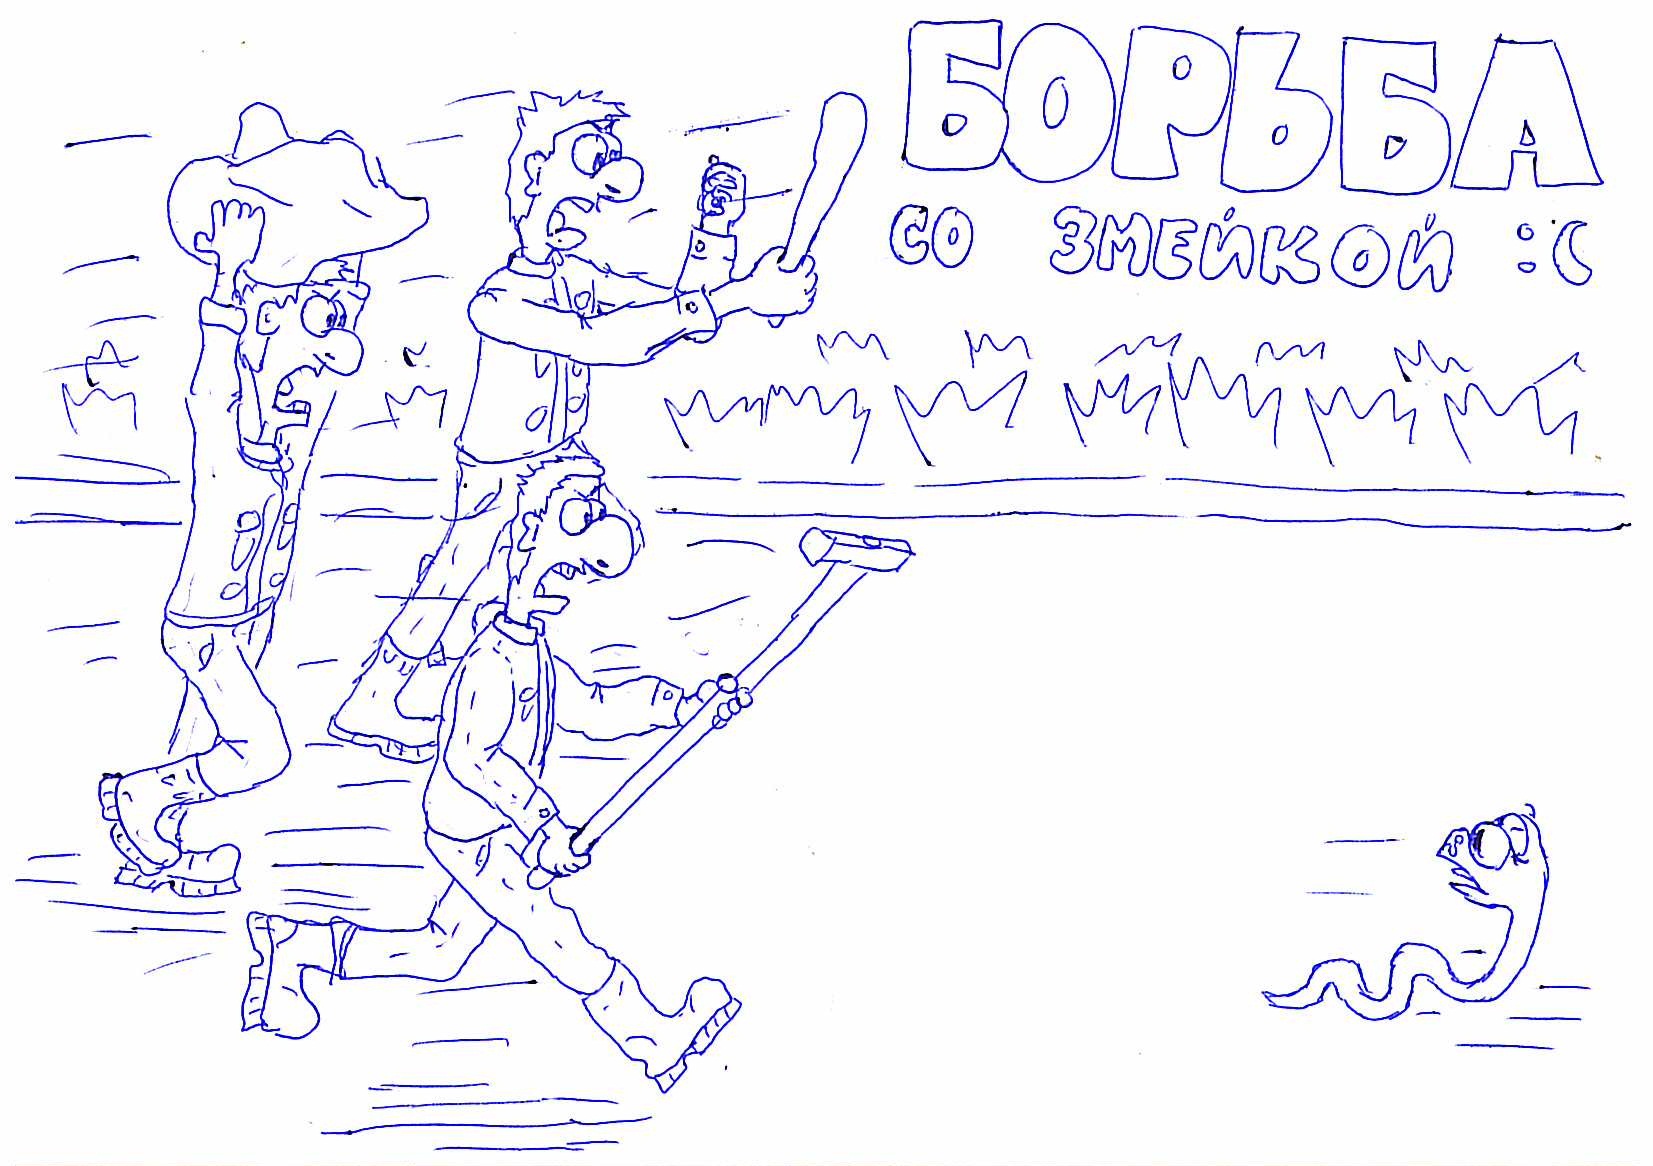 БОРЬБА
СО ЗМЕЙКОЙ :C